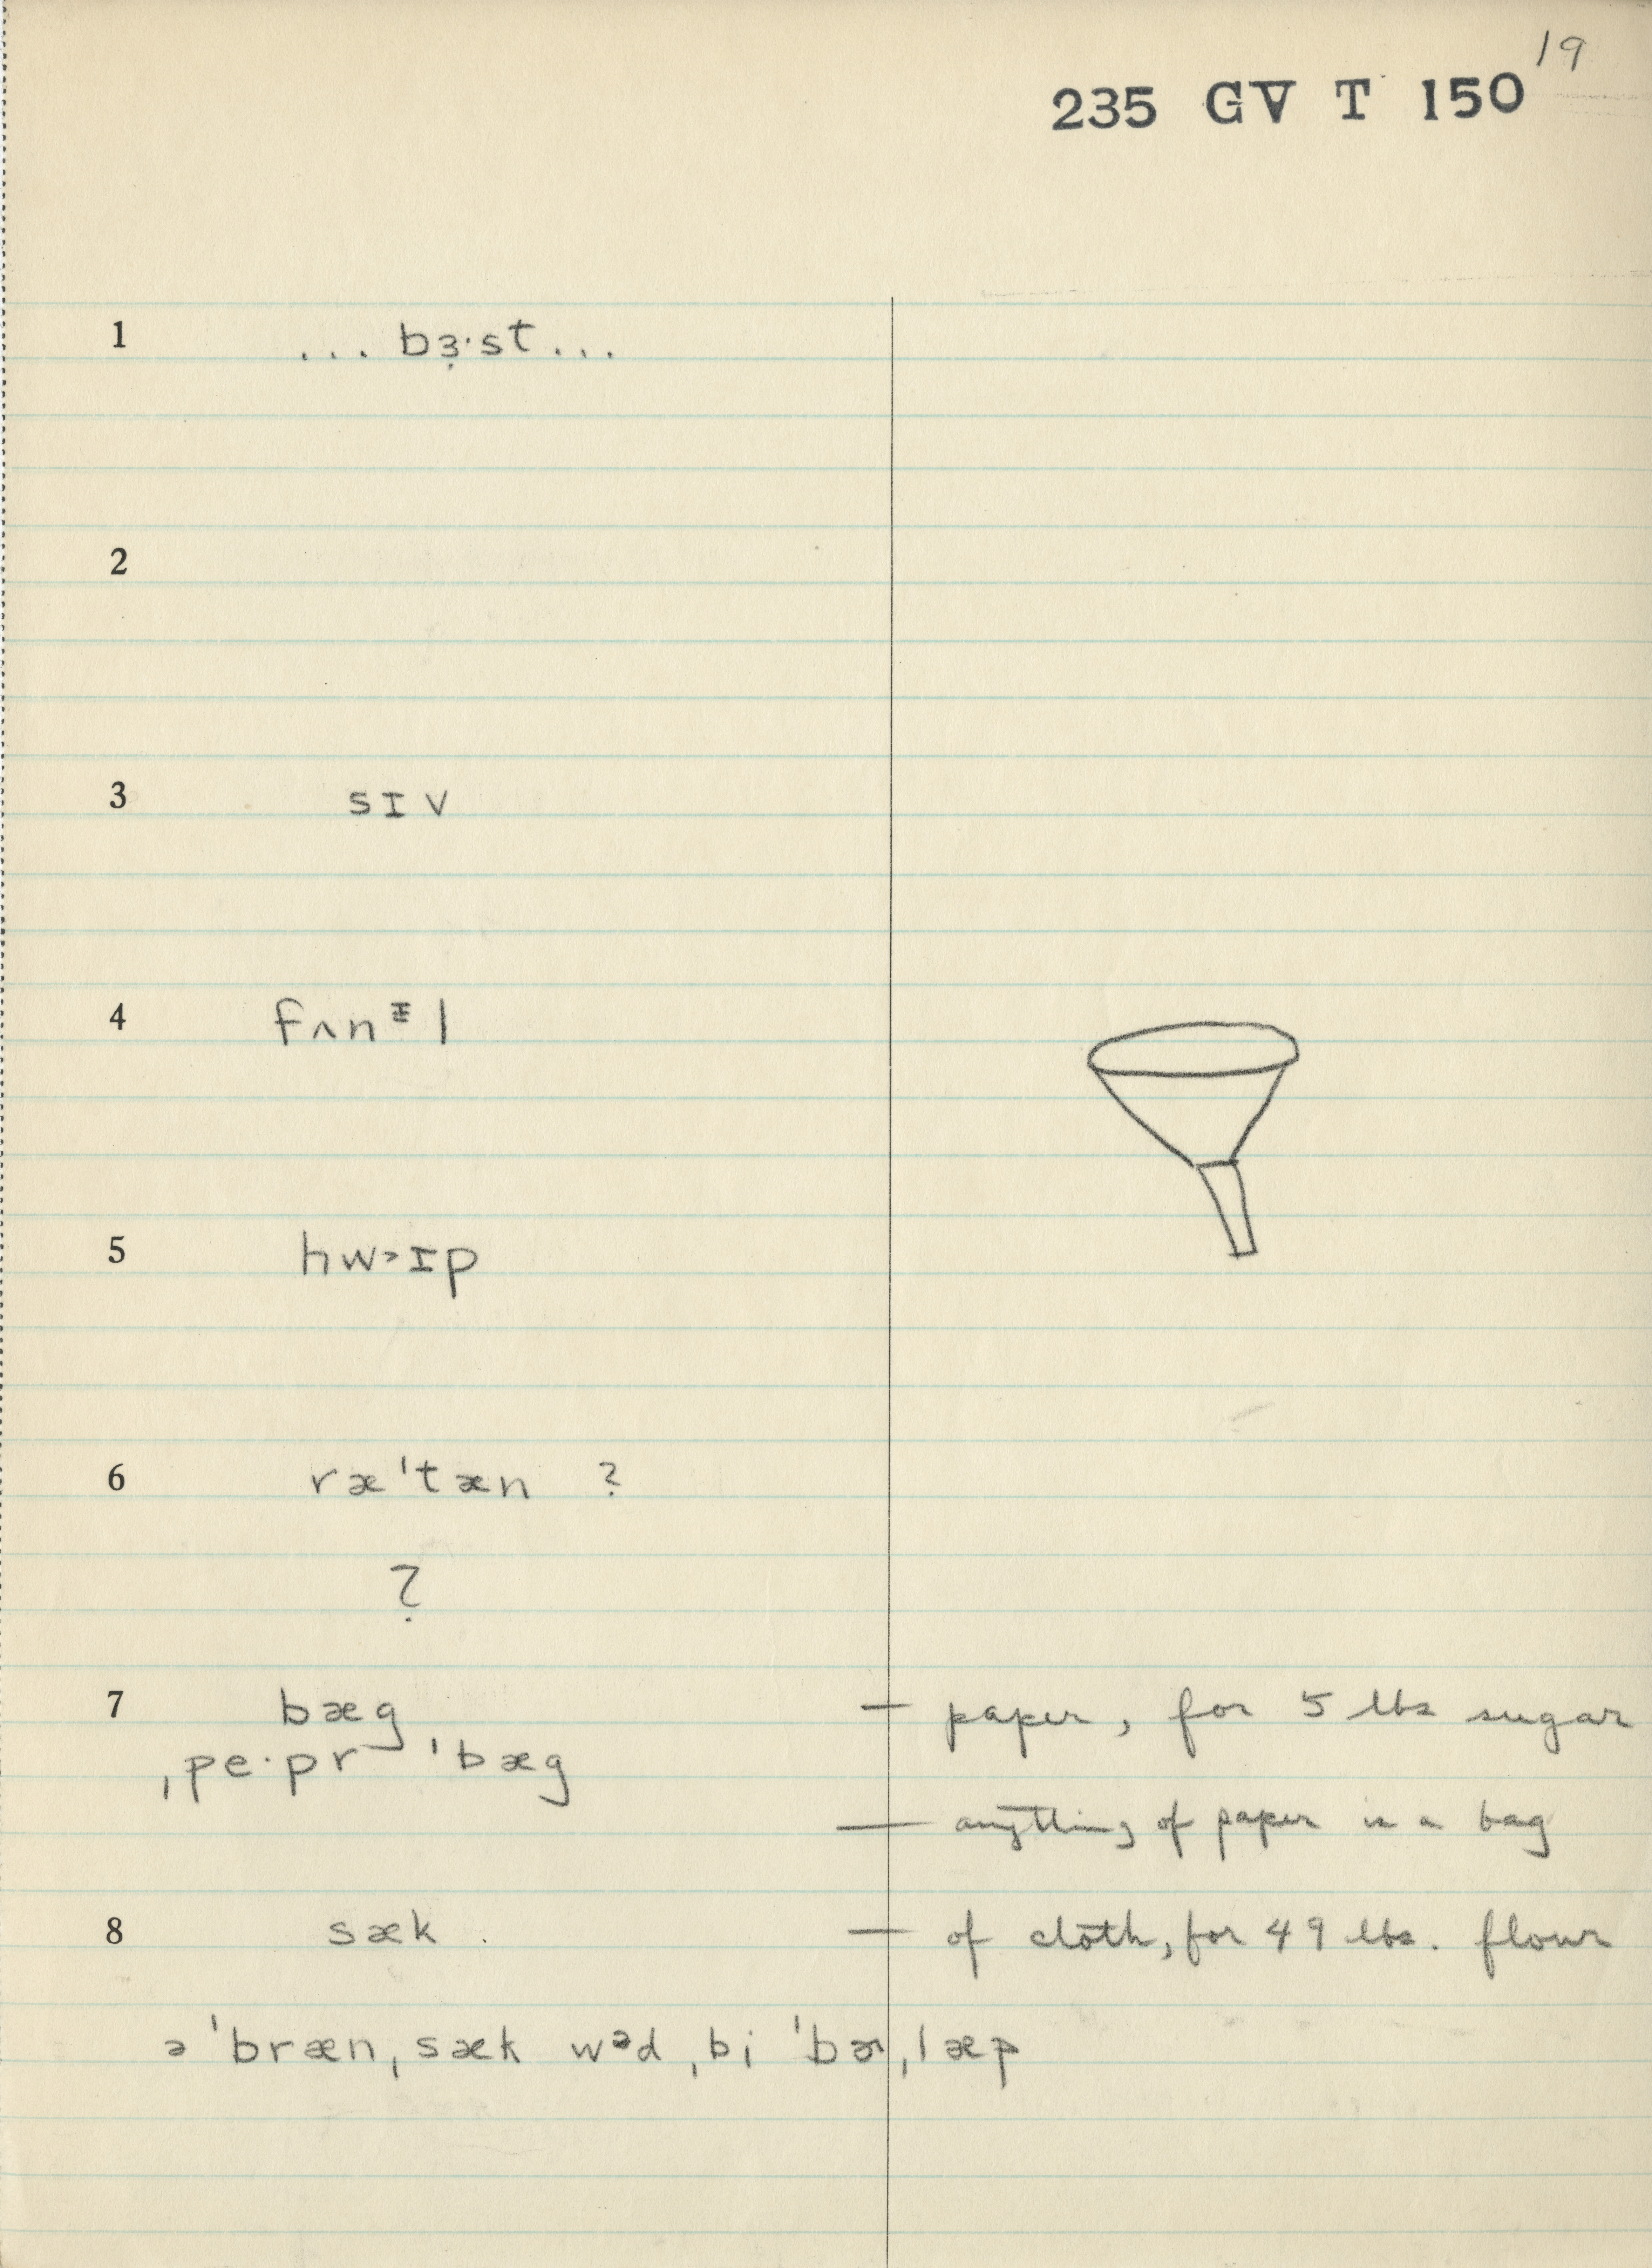 19
235 GV T 150
1 ... bɜ̣·st ...
2
3 sɪv
4 fʌnᵻl
5 hw˃ɪp
6 ræˈtæn ?
?
7 bæg — paper, for 5 lbs sugar
ˌpe·pr ˈbæg
— anything of paper is a bag
8 sæk . — of cloth, for 49 lbs. flour
ə ˈbrænˌsæk wᵊd ˌbi ˈbɚˌlæp